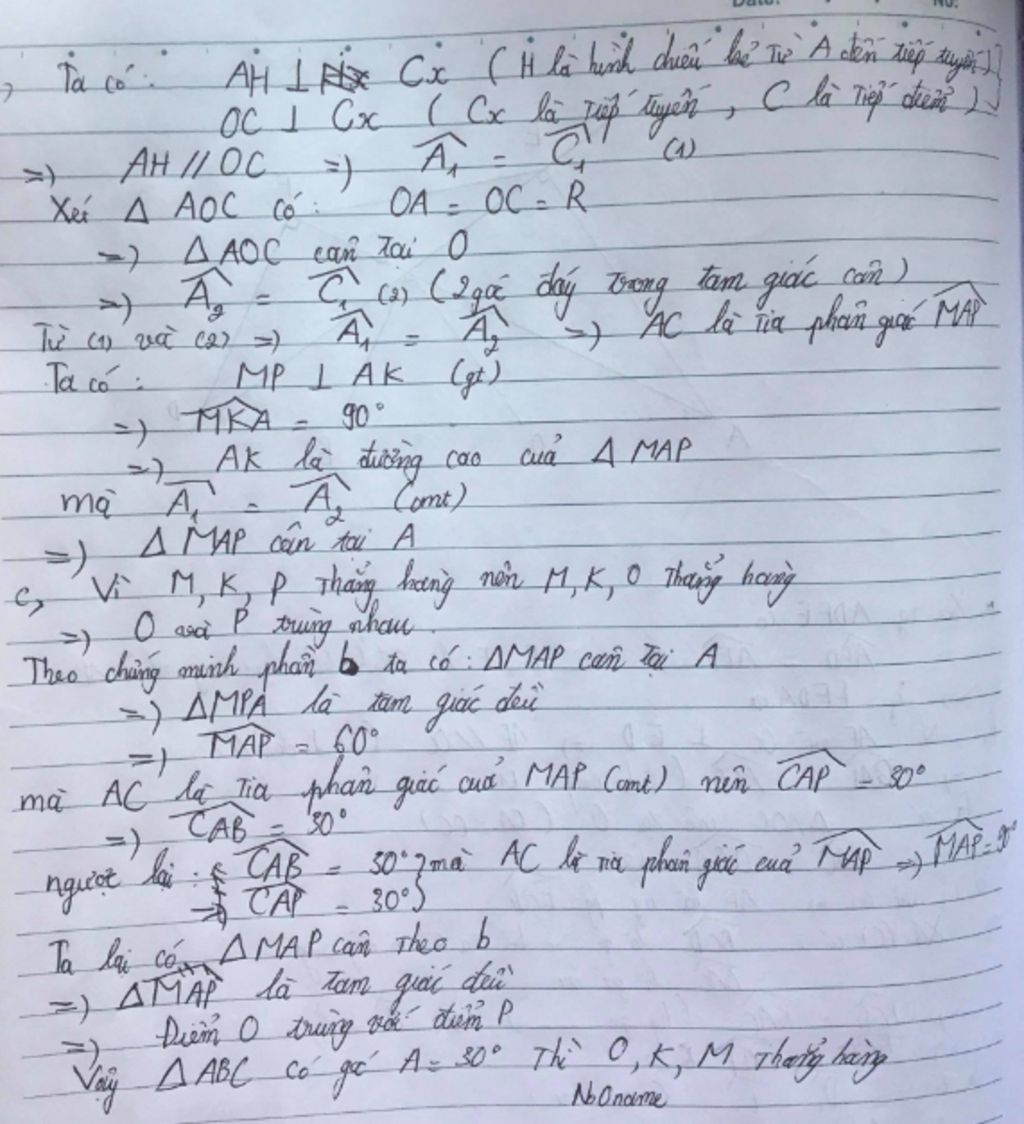 Date: No:
, Ta có: AH ⊥ Cx (H là hình chiếu kẻ từ A đến tiếp tuyến)
OC ⊥ Cx (Cx là tiếp tuyến, C là tiếp điểm)
=) AH // OC =) Â₁ = Ĉ₁ (1)
Xét Δ AOC có: OA = OC = R
=) Δ AOC cân tại O
=) Â₂ = Ĉ₁ (2) (2 góc đáy trong tam giác cân)
Từ (1) và (2) =) Â₁ = Â₂ =) AC là tia phân giác MAP
Ta có: MP ⊥ AK (gt)
=) MKA = 90°
=) AK là đường cao cuả Δ MAP
mà Â₁ = Â₂ (cmt)
=) Δ MAP cân tại A
c, Vì M, K, P thẳng hàng nên M, K, O thẳng hàng
=) O và P trùng nhau.
Theo chứng minh phần b ta có: ΔMAP cân tại A
=) ΔMPA là tam giác đều
=) MAP = 60°
mà AC là tia phân giác cuả MAP (cmt) nên CAP = 30°
=) CAB = 30°
ngược lại: CAB = 30° } mà AC là tia phân giác cuả MAP =) MAP = 90°
=) CAP = 30° }
Ta lại có ΔMAP cân theo b
=) ΔMAP là tam giác đều
=) Điểm O trùng với điểm P
Vậy ΔABC có góc A = 30° thì O, K, M thẳng hàng
NoOname